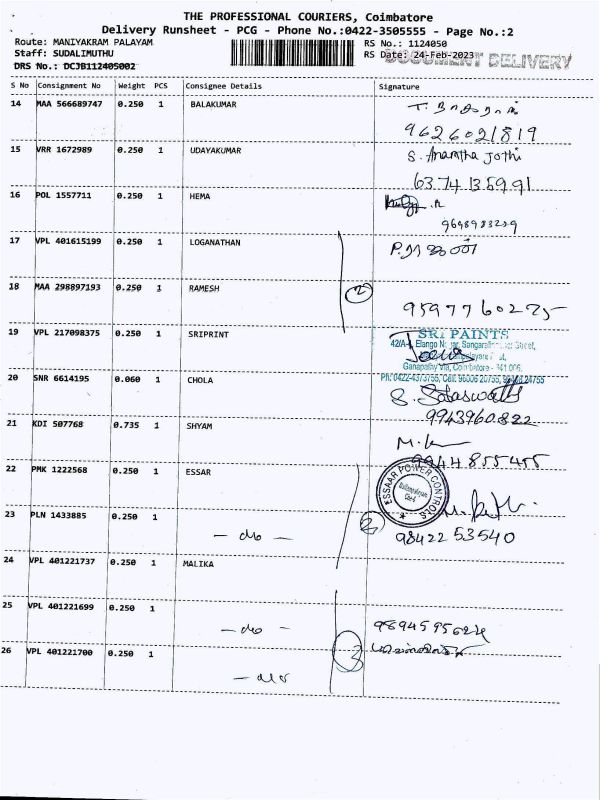 THE PROFESSIONAL COURIERS, Coimbatore
Delivery Runsheet - PCG - Phone No.:0422-3505555 - Page No.:2
Route: MANIYAKRAM PALAYAM RS No.: 1124050
Staff: SUDALIMUTHU RS Date: 24-Feb-2023 DOCUMENT DELIVERY
DRS No.: DCJB112405002
S No Consignment No Weight PCS Consignee Details Signature
14 MAA 566689747 0.250 1 BALAKUMAR
9626021819
15 VRR 1672989 0.250 1 UDAYAKUMAR S. Anantha Jothi
63741 35991
16 POL 1557711 0.250 1 HEMA
17 VPL 401615199 0.250 1 LOGANATHAN P. ராஜன்
18 MAA 298897193 0.250 1 RAMESH 2
9597760275
19 VPL 217098375 0.250 1 SRIPRINT SRI PAINTS
Ph: 0422-4373755, Cell: 96006 20755,
20 SNR 6614195 0.060 1 CHOLA S. Saraswathi
9943960822
21 KDI 507768 0.735 1 SHYAM
9944855455
22 PMK 1222568 0.250 1 ESSAR ESSAAR POWER CONTROLS
23 PLN 1433885 0.250 1 - do - 2
98422 53540
24 VPL 401221737 0.250 1 MALIKA
25 VPL 401221699 0.250 1 - do -
26 VPL 401221700 0.250 1 - do - 3